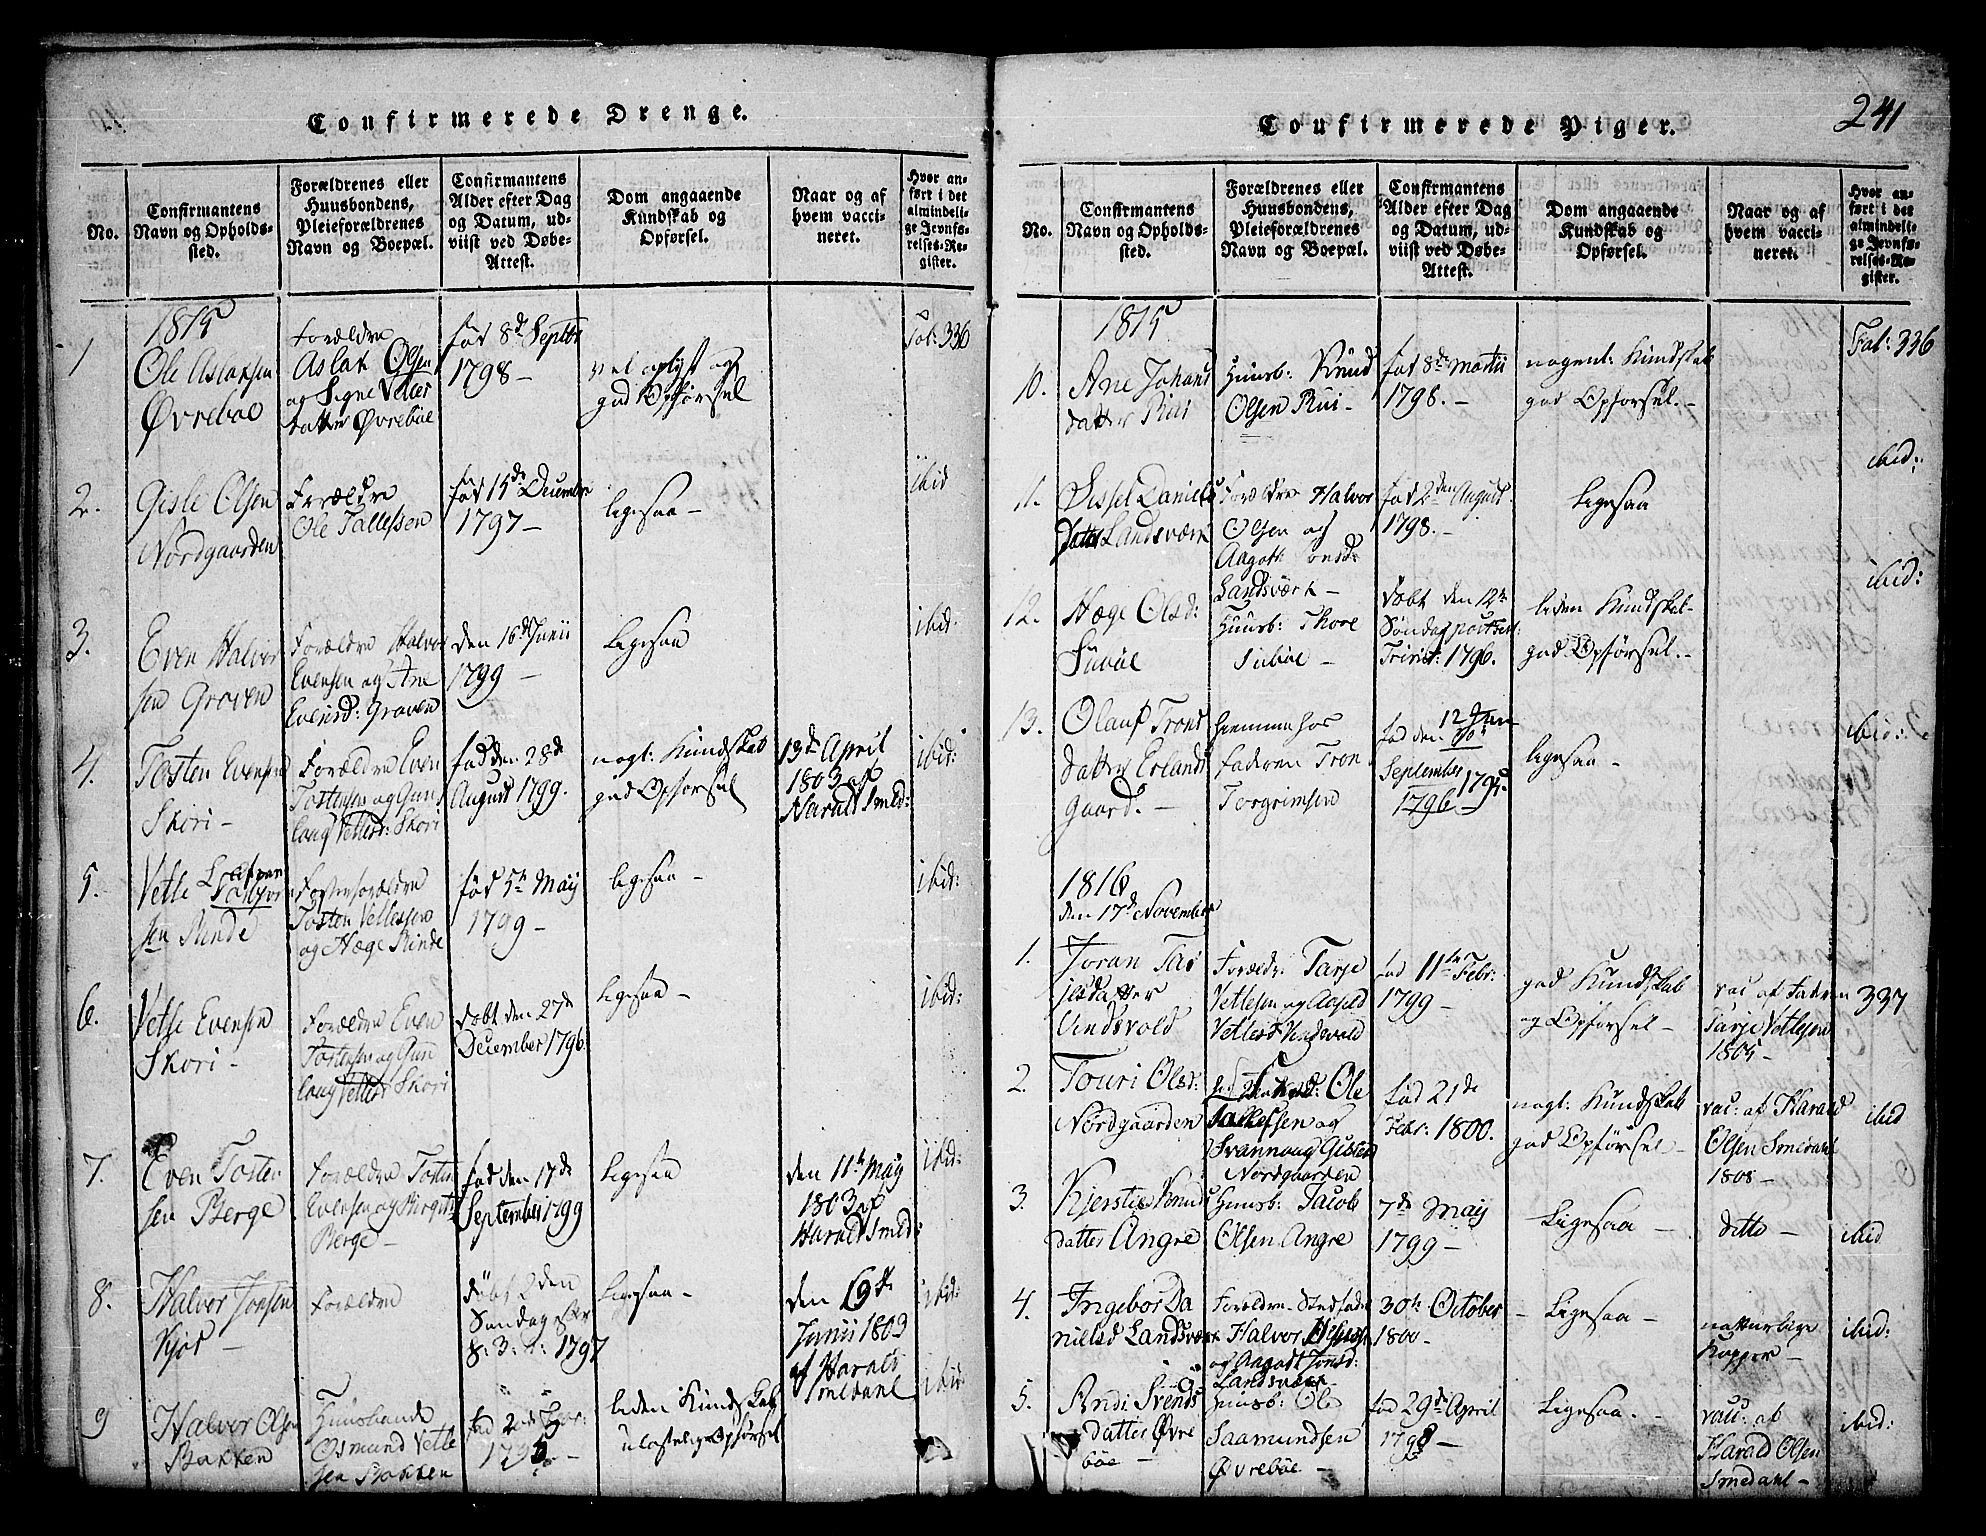 Confirmerede Drenge.
No.
Confirmantens
Navn og Opholds-
sted.
Forældrenes eller
Huusbondens,
Pleieforældrenes
Navn og Boepæl.
Confirmantens
Alder efter Dag
og Datum, ud-
viist ved Døbe-
Attest.
Dom angaaende
Kundskab og
Opførsel.
Naar og af
hvem vacci-
neret.
Hvor an-
ført i det
almindeli-
ge Jevnfø-
relses-Re-
gister.
1815
1
Ole Aslaksen
Øvreboe
Forældre
Aslak Olsen
og Signe Vetles
datter Øvreboe
fød 8de Septbr
1798 -
vel oplyst og
god Opførsel
Fol: 336
2.
Gisle Olsen
Nordgaarden
Forældre
Ole Tallefsen
fød 15de December
1797 -
ligesaa -
ibid
3.
Even Halvor
sen Graven
Forældre Halvor
Evensen og Ane
Evensd: Graven
den 16de Junii
1799 -
ligesaa
ibid.
4.
Tosten Evensen
Skori -
Forældre Even
Tostensen og Gun
laug Vetlesd: Skori
fød den 28de
August 1799.
nogl: Kundskab
god Opførsel
13de April
1803 af
Harald Smed:
ibid:
5.
Vetle
sen Rinde
Fosterforældre
Tosten Vetlessen
og Hæge Rinde
fød 5te May
1799 -
ligesaa -
ibid:
6.
Vetle Evensen
Skori -
Forældre Even
Tostensen og Gun
laug Vetlesd Skori
døbt den 27de
December 1796.
ligesaa -
ibid:
7.
Even Tosten
sen Berge
Forældre Tosten
Evensen og Birgit
Berge -
fød den 17de
September 1799
ligesaa
den 11te May
1803 af
Harald Smed:
ibid:
8.
Halvor Jonsen
Kjos -
Forældre
døbt 2den
Søndag efter
1797
ligesaa -
den 19de
Junii 1803
af Harald
Smedahl
ibid:
9
Halvor Olsen
Bakken
Huusbonde
Osmund Vetle
sen Bakken
fød 2de
liden Kundskab
ulastelig Opførsel
ibid
Confirmerede Piger.
241
No.
Confirmantens
Navn og Opholds-
sted.
Forældrenes eller
Huusbondens,
Pleieforældrenes
Navn og Boepæl.
Confirmantens
Alder efter Dag
og Datum, ud-
viist ved Døbe-
Attest.
Dom angaaende
Kundskab og
Opførsel.
Naar og af
hvem vacci-
neret.
Hvor an-
ført i det
almindeli-
ge Jevnfø-
relses-Re-
gister.
1815
10.
Ane Johans
datter Rui
Huusb: Knud
Olsen Rui -
fød 8de Martii
1798. -
nogenl: Kundskab
god Opførsel. -
Fol: 336
11.
Sissel Daniels
datter Landsværk
Forældre Halvor
Olsen og
Aagoth
Landsværk -
fød 2den August
1798. -
Ligesaa
ibid:
12.
Hæge Olsd:
Sæbøe
Huusb: Thore
døbt den 12te
Søndag post
Trinit: 1796.
liden Kundskab
god Opførsel. -
ibid:
13.
Olauf Trond
datter Erlands
gaard. -
hiemme hos
Faderen Tron
Torgrimsen
fød den
September
1796
ligesaa -
ibid:
1816
den 17de November
1.
Joran Tar
jesdatter
Vindsvold
Forældr: Tarje
Vetlesen og Aaseld
Vetlesd Vindsvold
fød 11te Febr:
1799 -
god Kundskab
og Opførsel -
vac af Faderen
Tarje Vetlesen
1805 -
337
2.
Touri Olsd:
Nordgaarden
Ole
Tallefsen og
Svannoug Gisles
Nordgaarden
fød 21de
Febr: 1800.
nogl: Kundskab
god Opførsel -
vac: af Harald
Olsen Smedahl
1808 -
ibid
3.
Kjerstie Knuds
datter Angre
Huusb: Jacob
Olsen Angre
7de May
1799 -
Ligesaa -
ditto -
ibid
4.
Ingebor Da
nielsd Landsværk
Forældre Stedfader
Halvor
og Aagodt Jonsd:
Landsværk
30te October
1800 -
Ligesaa -
natturlige
Kopper -
ibid:
5.
Andi Svends
datter Øvre
bøe -
Huusb: Ole
Saamundsen
Øvrebøe -
fød 29de April
1798 -
Ligesaa. -
vac: af
Harald Olsen
Smedahl -
ibid: